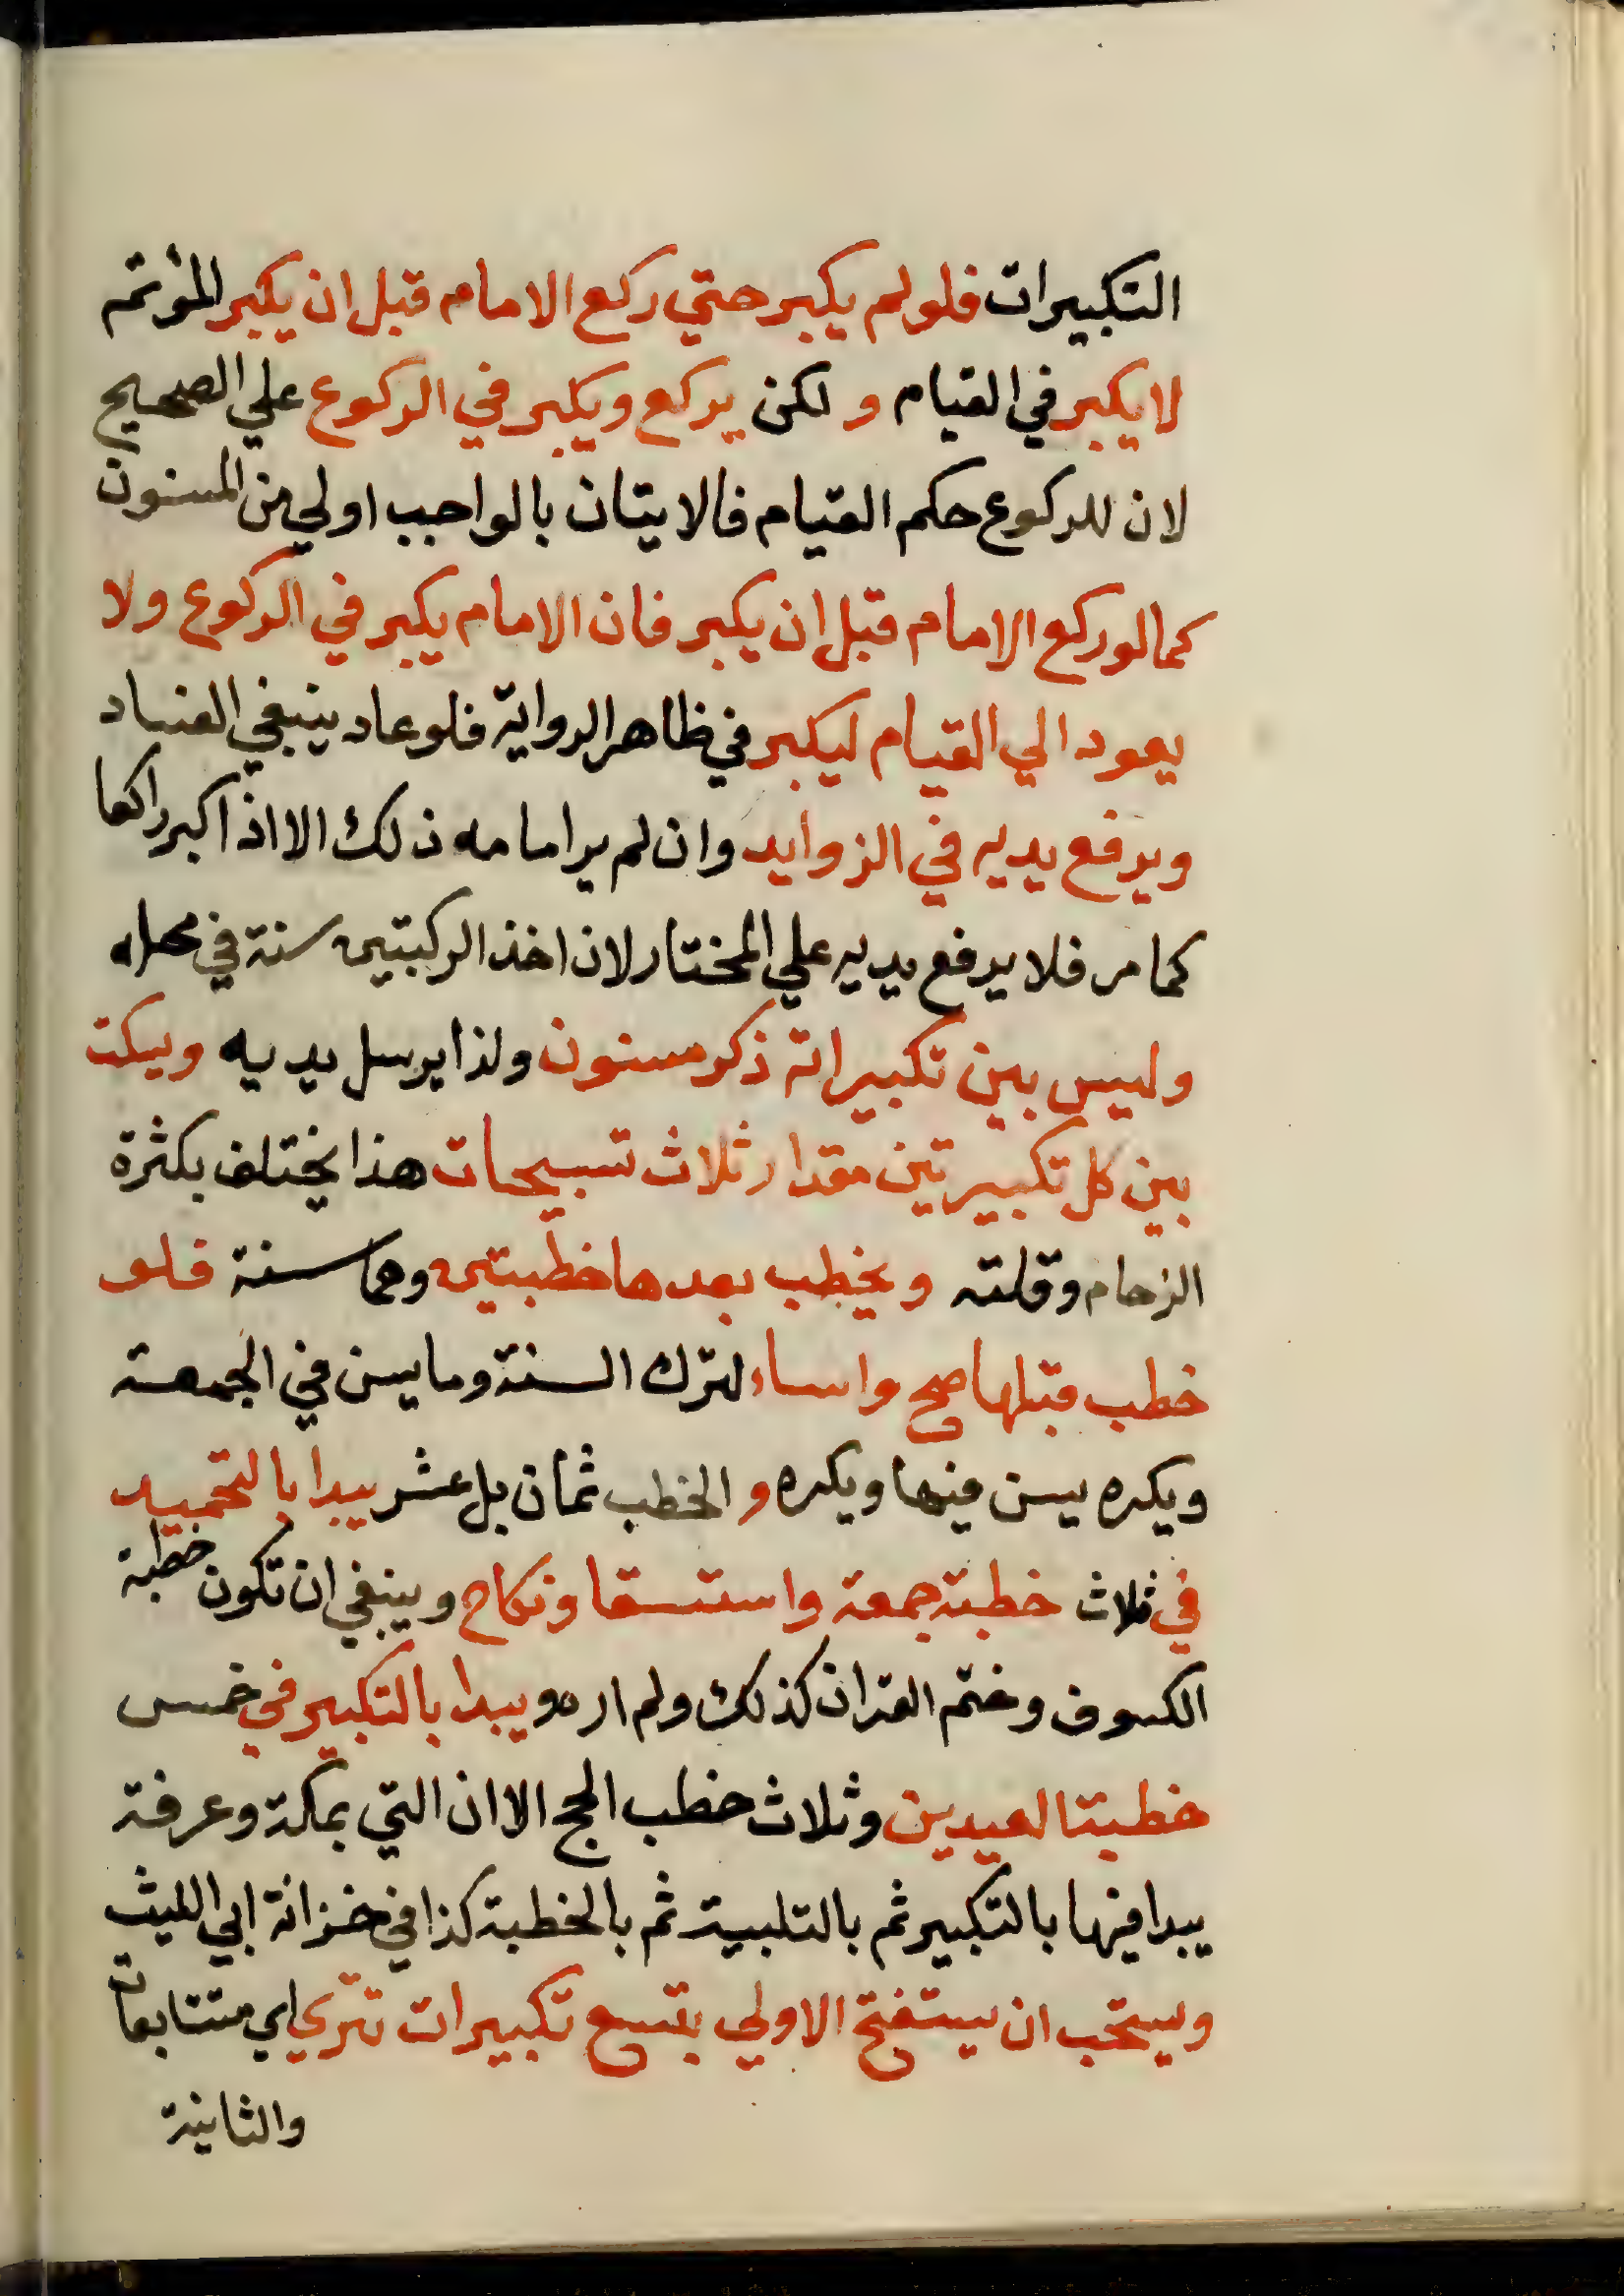 التكبيرات فلو لم يكبر حتي ركع الامام قبل ان يكبر المؤتم
لا يكبر في القيام و لكن يركع ويكبر في الركوع علي الصحيح
لان للركوع حكم القيام فالايتان بالواجب اولي من المسنون
كما لو ركع الامام قبل ان يكبر فان الامام يكبر في الركوع ولا
يعود الي القيام ليكبر في ظاهر الرواية فلو عاد ينبغي الفساد
ويرفع يديه في الزوايد وان لم ير امامه ذلك الا اذا كبر راكعا
كما مر فلا يرفع يديه علي المختار لان اخذ الركبتين سنة في محله
وليس بين تكبيراته ذكر مسنون ولذا يرسل يديه ويسكت
بين كل تكبيرتين مقدار ثلاث تسبيحات هذا يختلف بكثرة
الزحام وقلته ويخطب بعدها خطبتين وهما سنة فلو
خطب قبلها صح واساء لترك السنة وما يسن في الجمعة
ويكره يسن فيها ويكره و الخطب ثمان بل عشر يبدا بالتحميد
في ثلاث خطبة جمعة واستسقا ونكاح وينبغي ان تكون خطبة
الكسوف وختم القران كذلك ولم اره ويبدا بالتكبير في خمس
خطبتا لعيدين وثلاث خطب الحج الا ان التي بمكة وعرفة
يبدا فيها بالتكبير ثم بالتلبية ثم بالخطبة كذا في خزانة ابي الليث
ويستحب ان يستفتح الاولي بتسع تكبيرات تتري اي متتابعات
والثانية